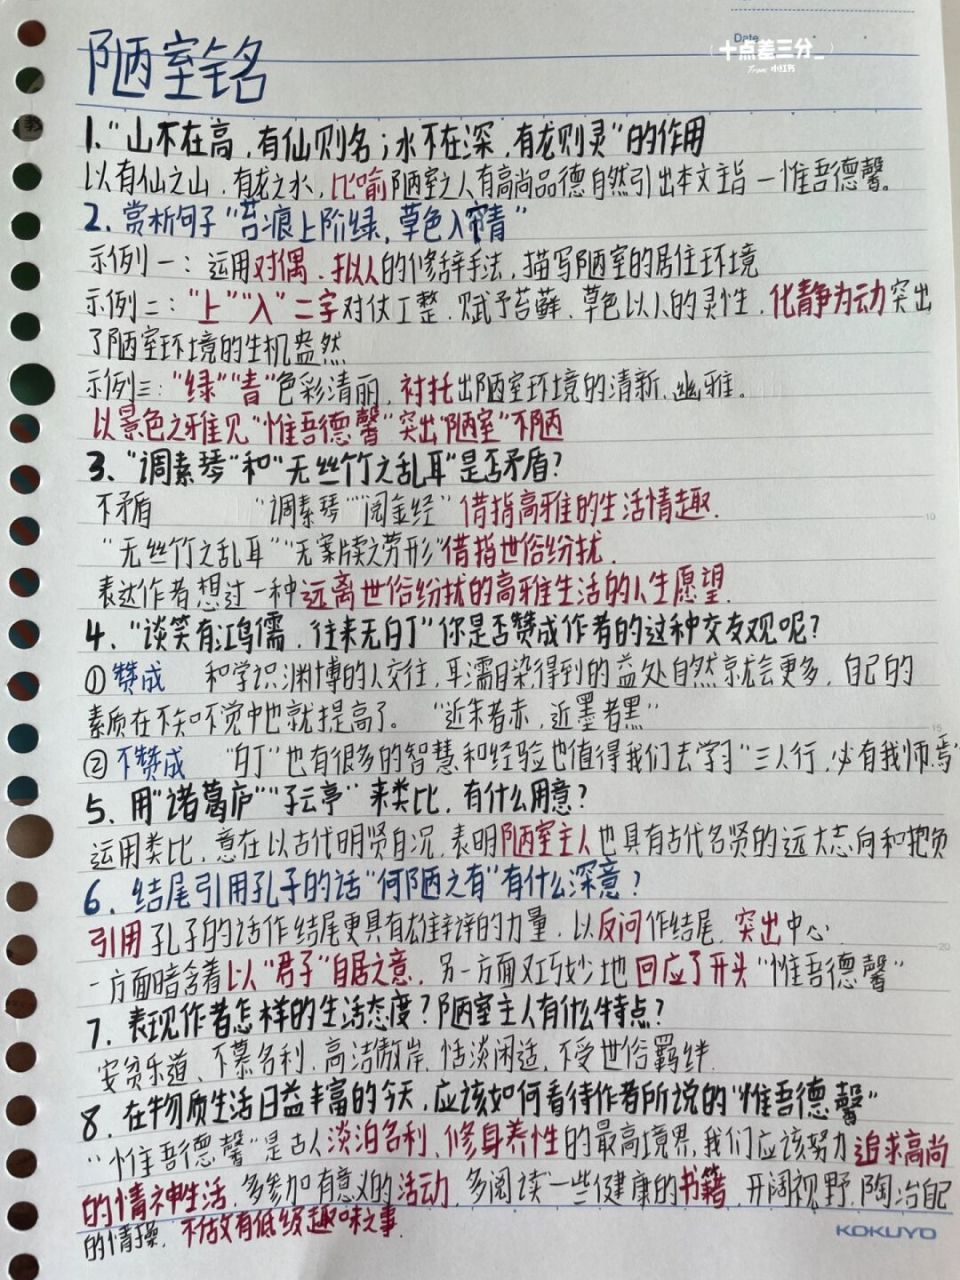 Date
十点差三分_
From 小红书
陋室铭
1."山不在高,有仙则名;水不在深,有龙则灵"的作用
以有仙之山,有龙之水,比喻陋室之人有高尚品德自然引出本文主旨一惟吾德馨。
2.赏析句子"苔痕上阶绿,草色入帘青"
示例一:运用对偶、拟人的修辞手法,描写陋室的居住环境
示例二:"上""入"二字对仗工整.赋予苔藓、草色以人的灵性,化静为动突出
了陋室环境的生机盎然
示例三:"绿""青"色彩清丽,衬托出陋室环境的清新、幽雅。
以景色之雅见"惟吾德馨"突出"陋室"不陋
3、"调素琴"和"无丝竹之乱耳"是否矛盾?
不矛盾 "调素琴""阅金经"借指高雅的生活情趣.
"无丝竹之乱耳""无案牍之劳形"借指世俗纷扰.
表达作者想过一种远离世俗纷扰的高雅生活的人生愿望.
4、"谈笑有鸿儒,往来无白丁"你是否赞成作者的这种交友观呢?
①赞成 和学识渊博的人交往,耳濡目染得到的益处自然就会更多,自己的
素质在不知不觉中也就提高了。 "近朱者赤,近墨者黑"
②不赞成 "白丁"也有很多的智慧和经验也值得我们去学习"三人行,必有我师焉"
5、用"诸葛庐""子云亭"来类比,有什么用意?
运用类比,意在以古代明贤自况,表明陋室主人也具有古代名贤的远大志向和抱负
6、结尾引用孔子的话"何陋之有"有什么深意?
引用孔子的话作结尾更具有雄辩的力量,以反问作结尾,突出中心
一方面暗含着以"君子"自居之意,另一方面又巧妙地回应了开头"惟吾德馨"
7、表现作者怎样的生活态度?陋室主人有什么特点?
安贫乐道、不慕名利、高洁傲岸、恬淡闲适、不受世俗羁绊.
8、在物质生活日益丰富的今天,应该如何看待作者所说的"惟吾德馨"
"惟吾德馨"是古人淡泊名利、修身养性的最高境界,我们应该努力追求高尚
的情神生活,多参加有意义的活动,多阅读一些健康的书籍,开阔视野,陶冶自己
的情操,不做有低级趣味之事
10
15
20
KOKUYO